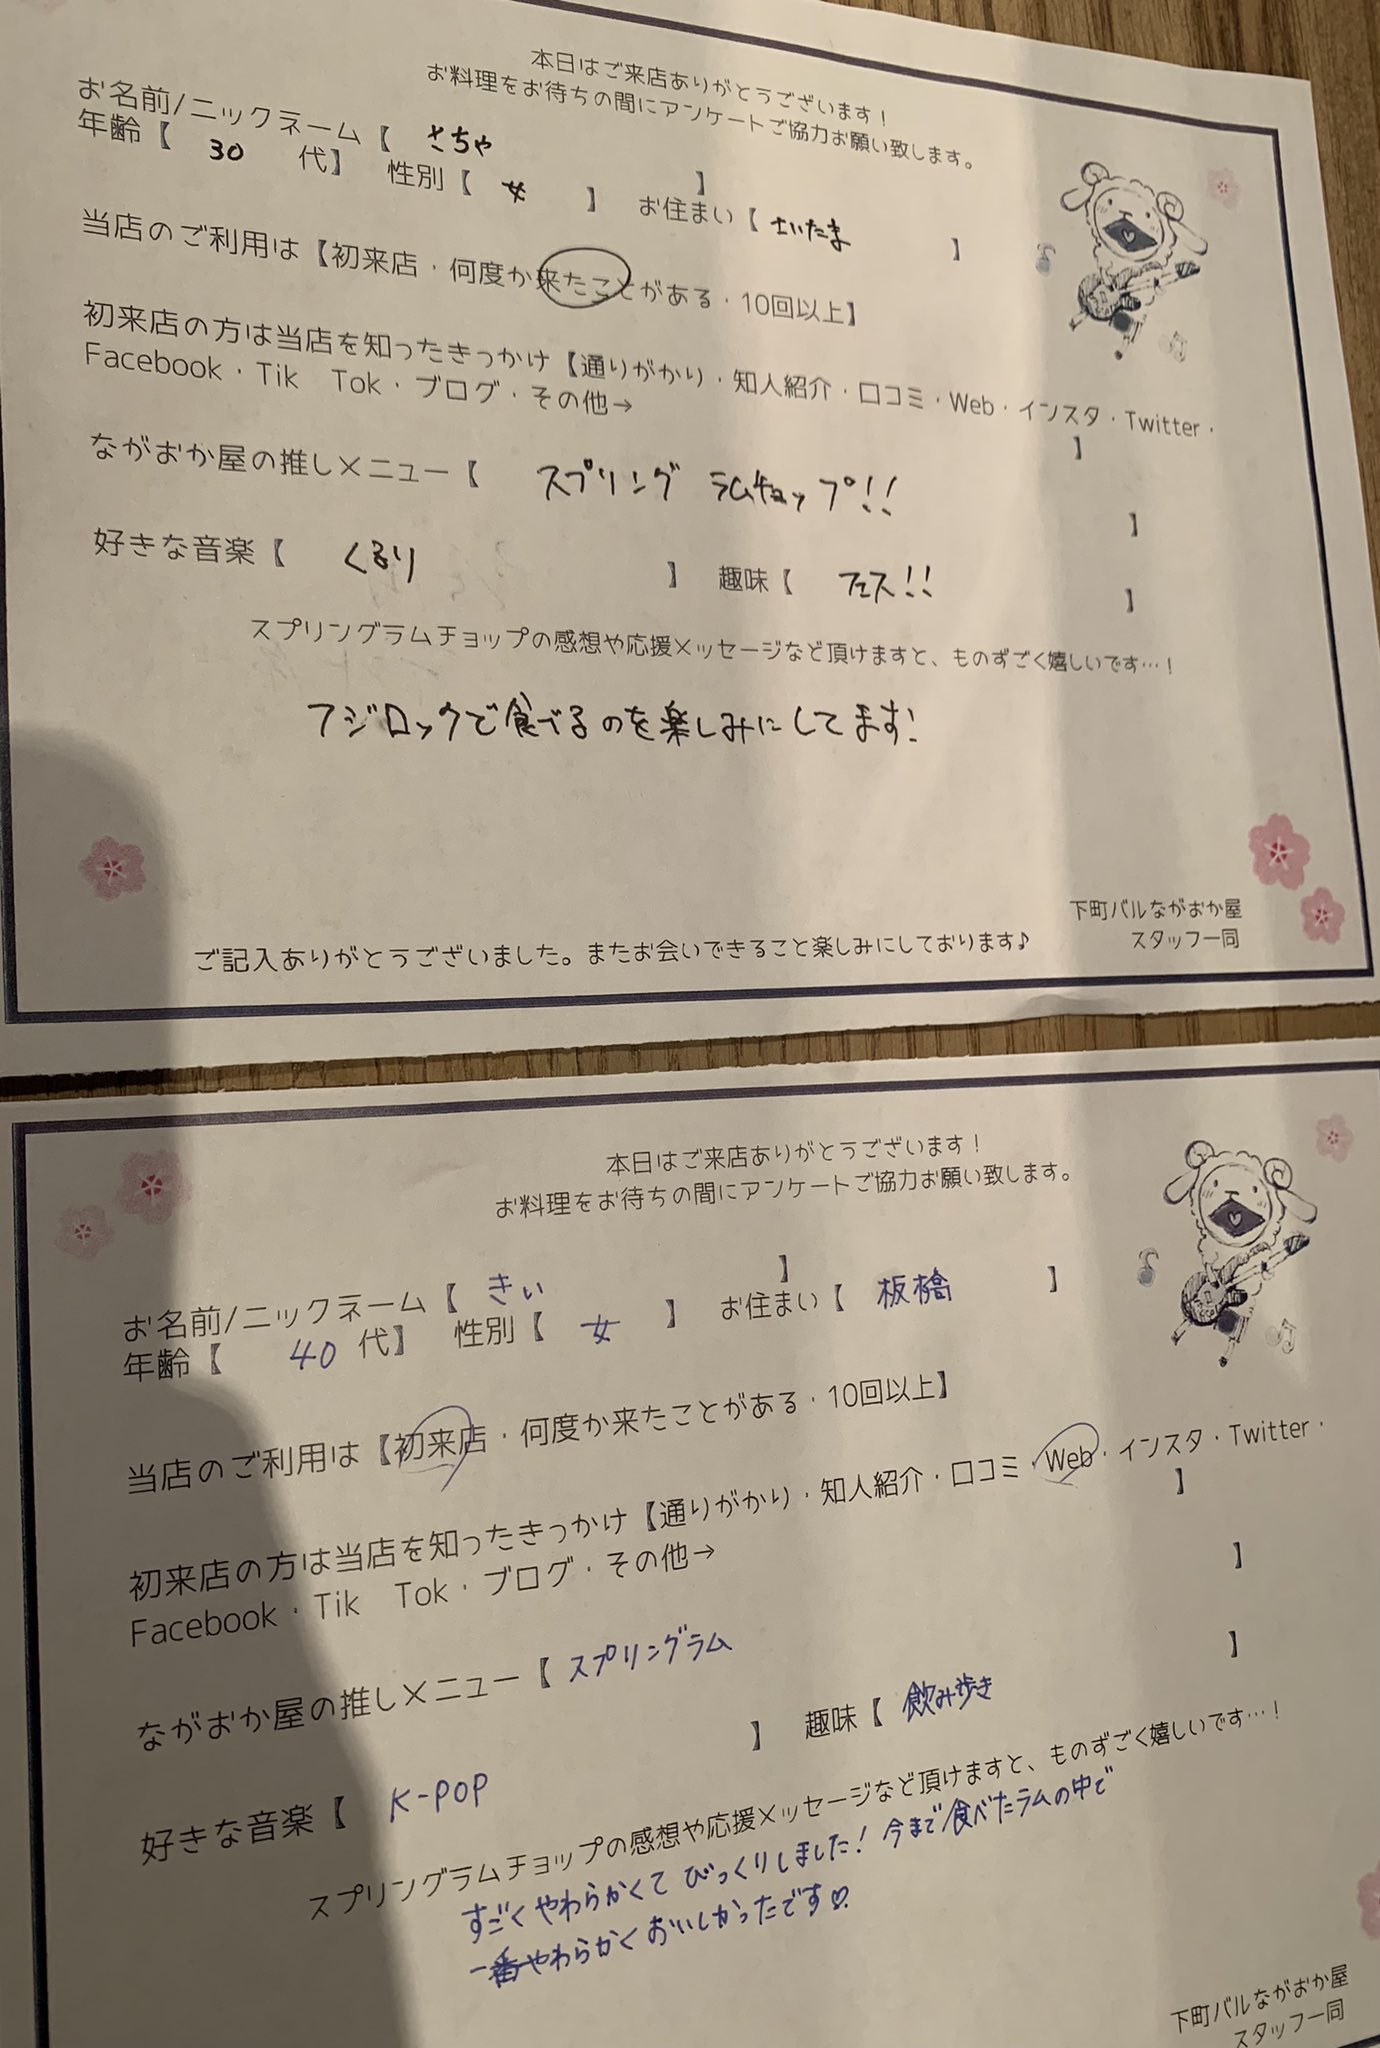 本日はご来店ありがとうございます！
お料理をお待ちの間にアンケートご協力お願い致します。
お名前/ニックネーム【 さちや 】
年齢【 30 代】 性別【 女 】 お住まい【 さいたま 】
当店のご利用は【初来店・何度か来たことがある・10回以上】
初来店の方は当店を知ったきっかけ【通りがかり・知人紹介・口コミ・Web・インスタ・Twitter・
Facebook・Tik Tok・ブログ・その他→ 】
ながおか屋の推しメニュー【 スプリング ラムチョップ!! 】
好きな音楽【 くるり 】 趣味【 フェス!! 】
スプリングラムチョップの感想や応援メッセージなど頂けますと、ものずごく嬉しいです…！
フジロックで食べるのを楽しみにしてます!
下町バルながおか屋
スタッフ一同
ご記入ありがとうございました。またお会いできること楽しみにしております♪
本日はご来店ありがとうございます！
お料理をお待ちの間にアンケートご協力お願い致します。
お名前/ニックネーム【 きい 】
年齢【 40 代】 性別【 女 】 お住まい【 板橋 】
当店のご利用は【初来店・何度か来たことがある・10回以上】
初来店の方は当店を知ったきっかけ【通りがかり・知人紹介・口コミ・Web・インスタ・Twitter・
Facebook・Tik Tok・ブログ・その他→ 】
ながおか屋の推しメニュー【 スプリングラム 】
好きな音楽【 K-POP 】 趣味【 飲み歩き 】
スプリングラムチョップの感想や応援メッセージなど頂けますと、ものずごく嬉しいです…！
すごくやわらかくてびっくりしました! 今まで食べたラムの中で
一番やわらかくおいしかったです♡.
下町バルながおか屋
スタッフ一同